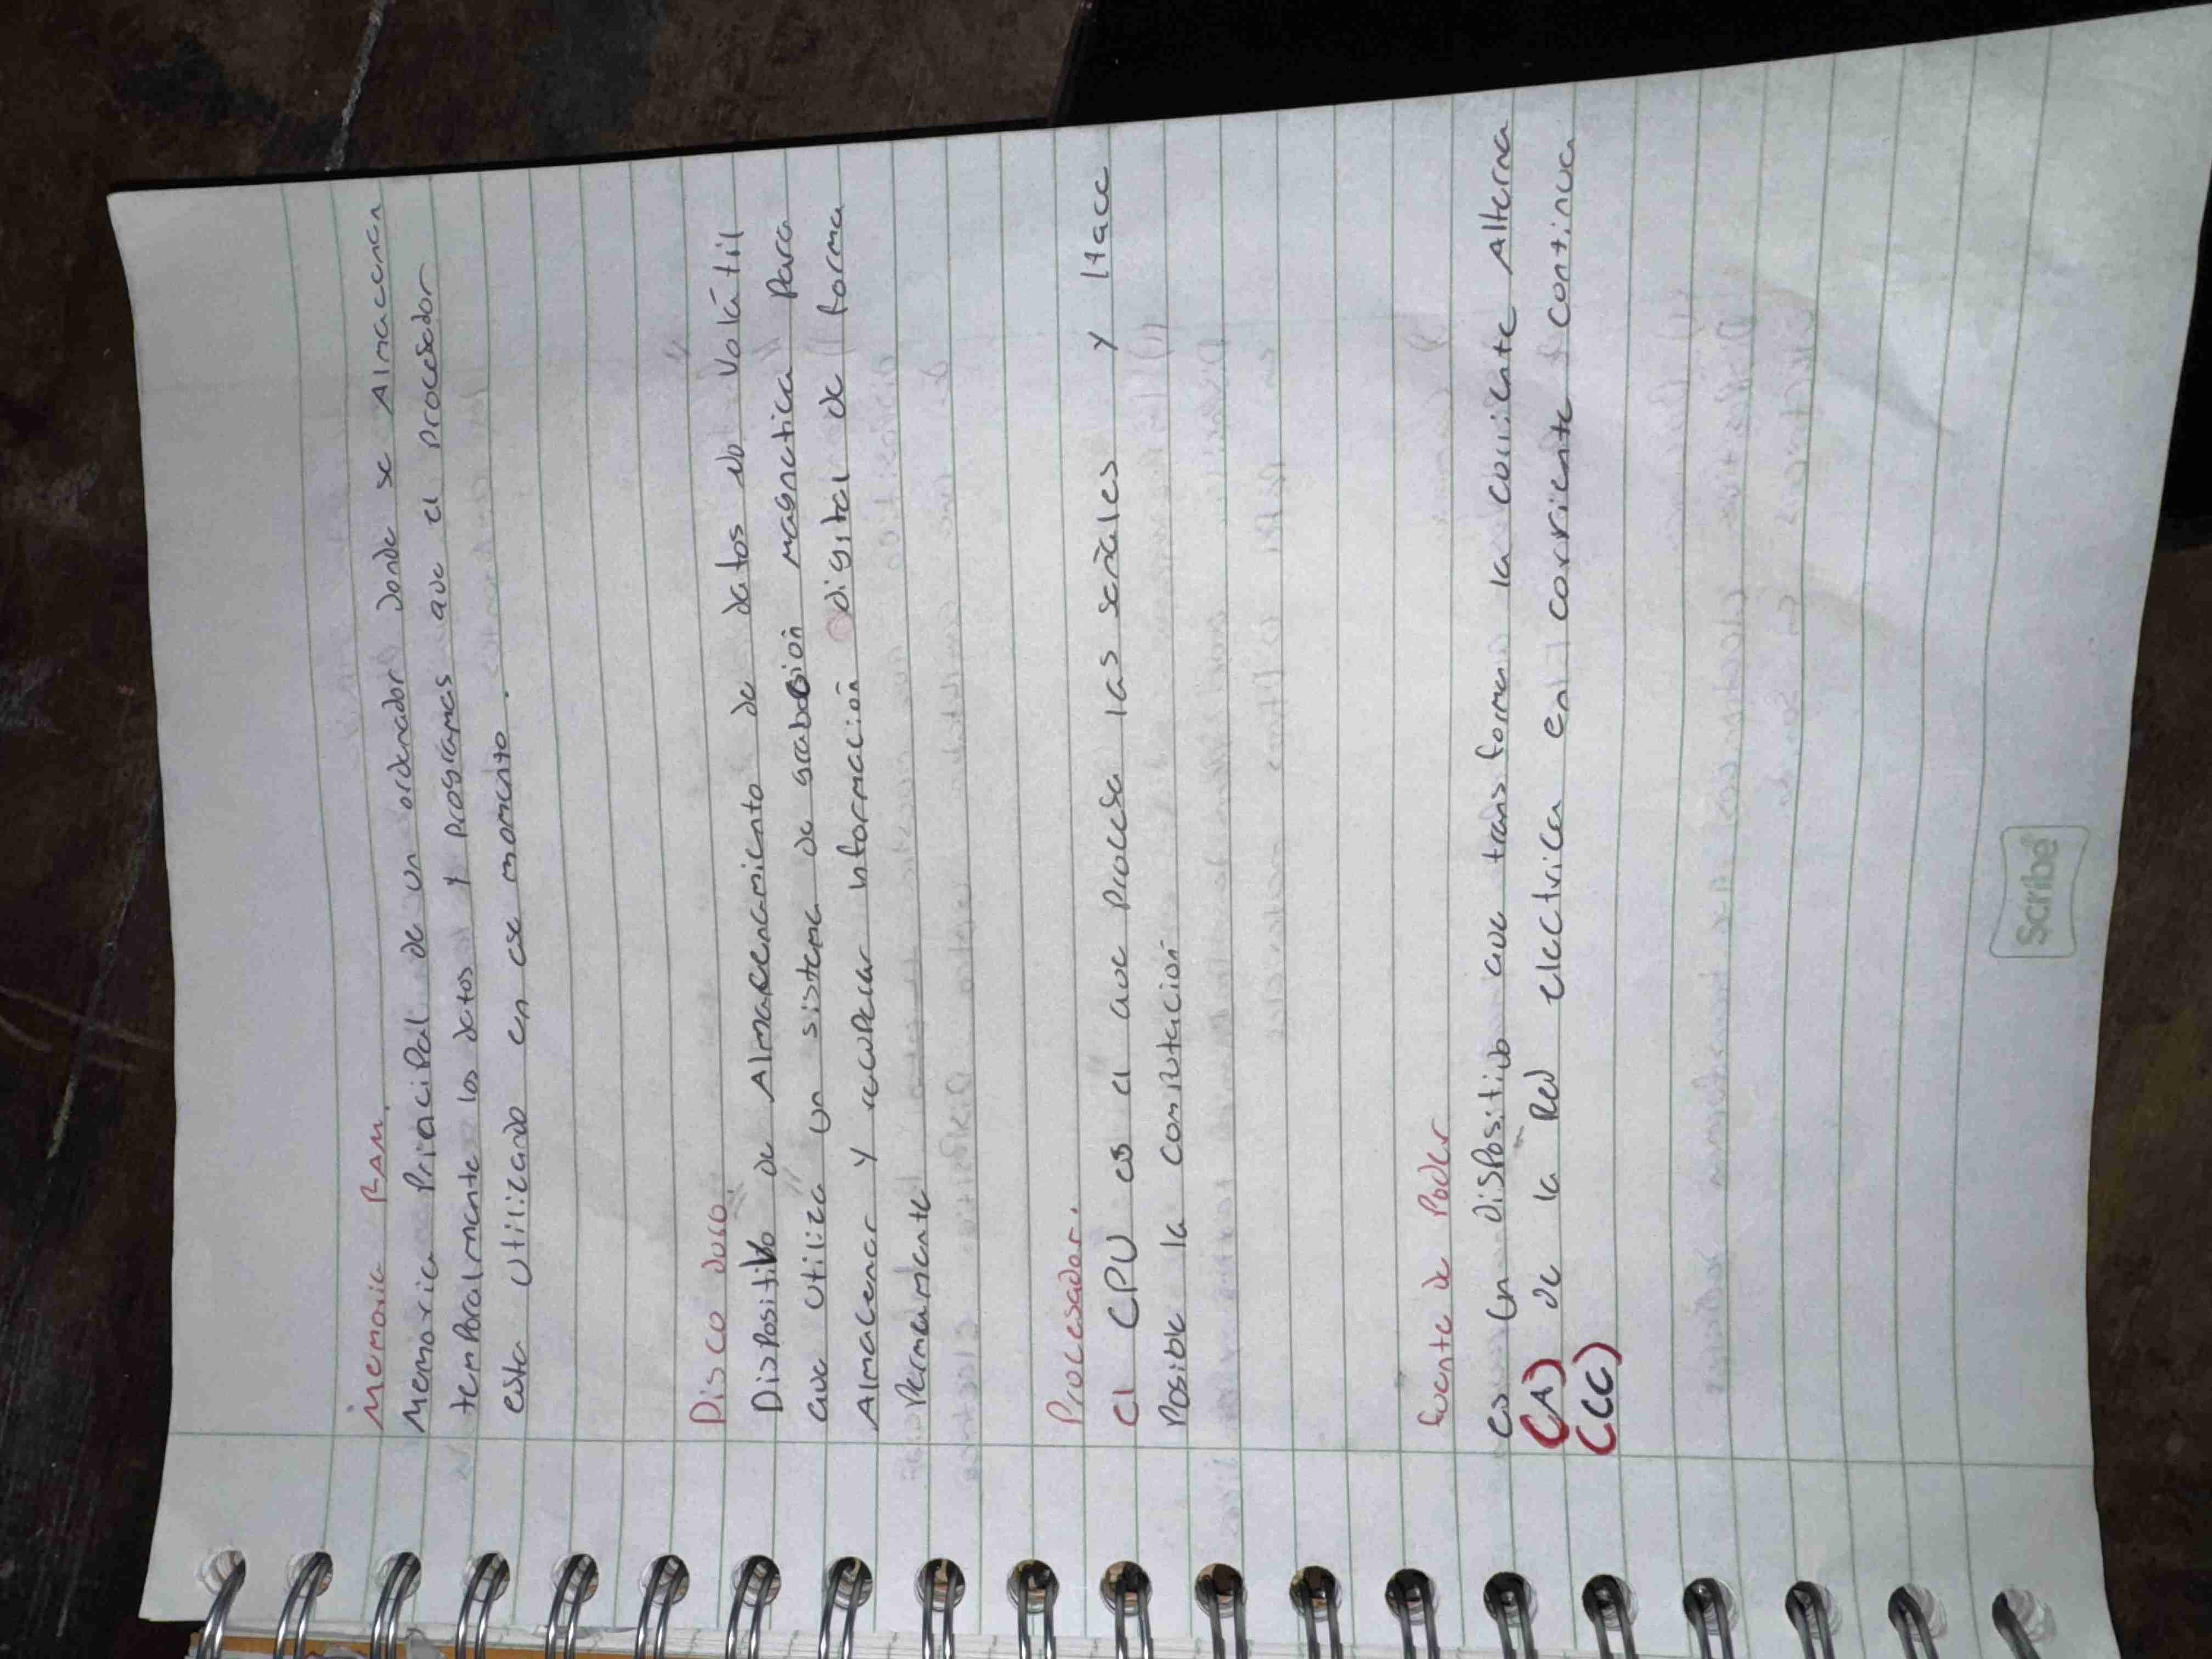 Memoria RAM.
Memoria Principal de un ordenador Donde se Almacenan
temporalmente los datos y programas que el procesador
esta Utilizando en ese momento.
Disco duro.
Dispositivo de Almacenamiento de datos no Volátil
que utiliza un sistema de grabación magnetica Para
Almacenar y recuperar informacion digital de forma
Permanente
Procesador.
el CPU es el que Procesa las señales y Hace
Posible la computación
fuente de Poder
es un Dispositivo que transforma la corriente Alterna
(A) de la Red electrica en corriente continua
(CC)
Scribe